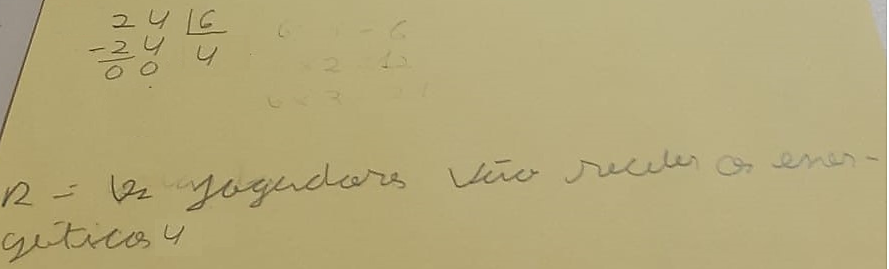 24 |6
-24 4
00
R = jogadores vão receber os ener-
géticos 4